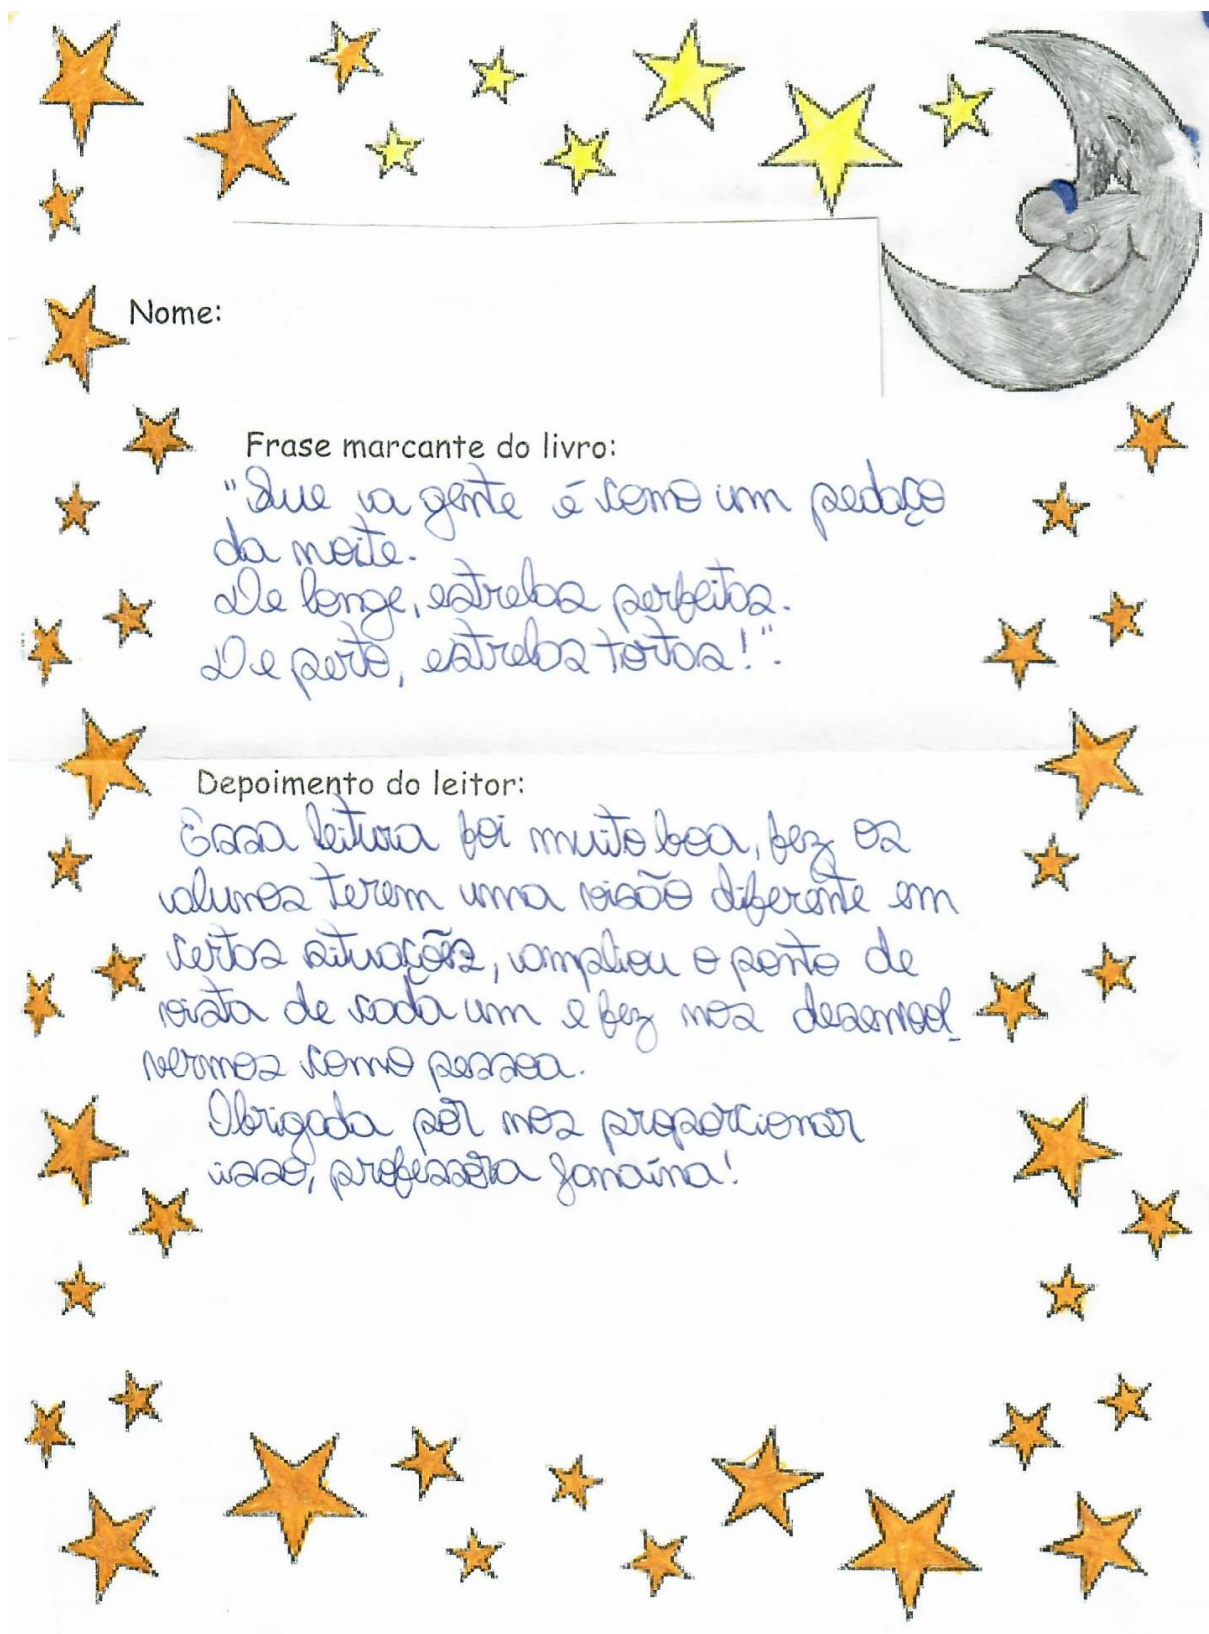 Nome:
Frase marcante do livro:
"Que a gente é como um pedaço
da noite.
De longe, estrelas perfeitas.
De perto, estrelas tortas!".
Depoimento do leitor:
Essa leitura foi muito boa, fez os
alunos terem uma visão diferente em
certas situações, ampliou o ponto de
vista de cada um e fez nos desenvol_
vermos como pessoa.
Obrigada por nos proporcionar
isso, professora Janaína!